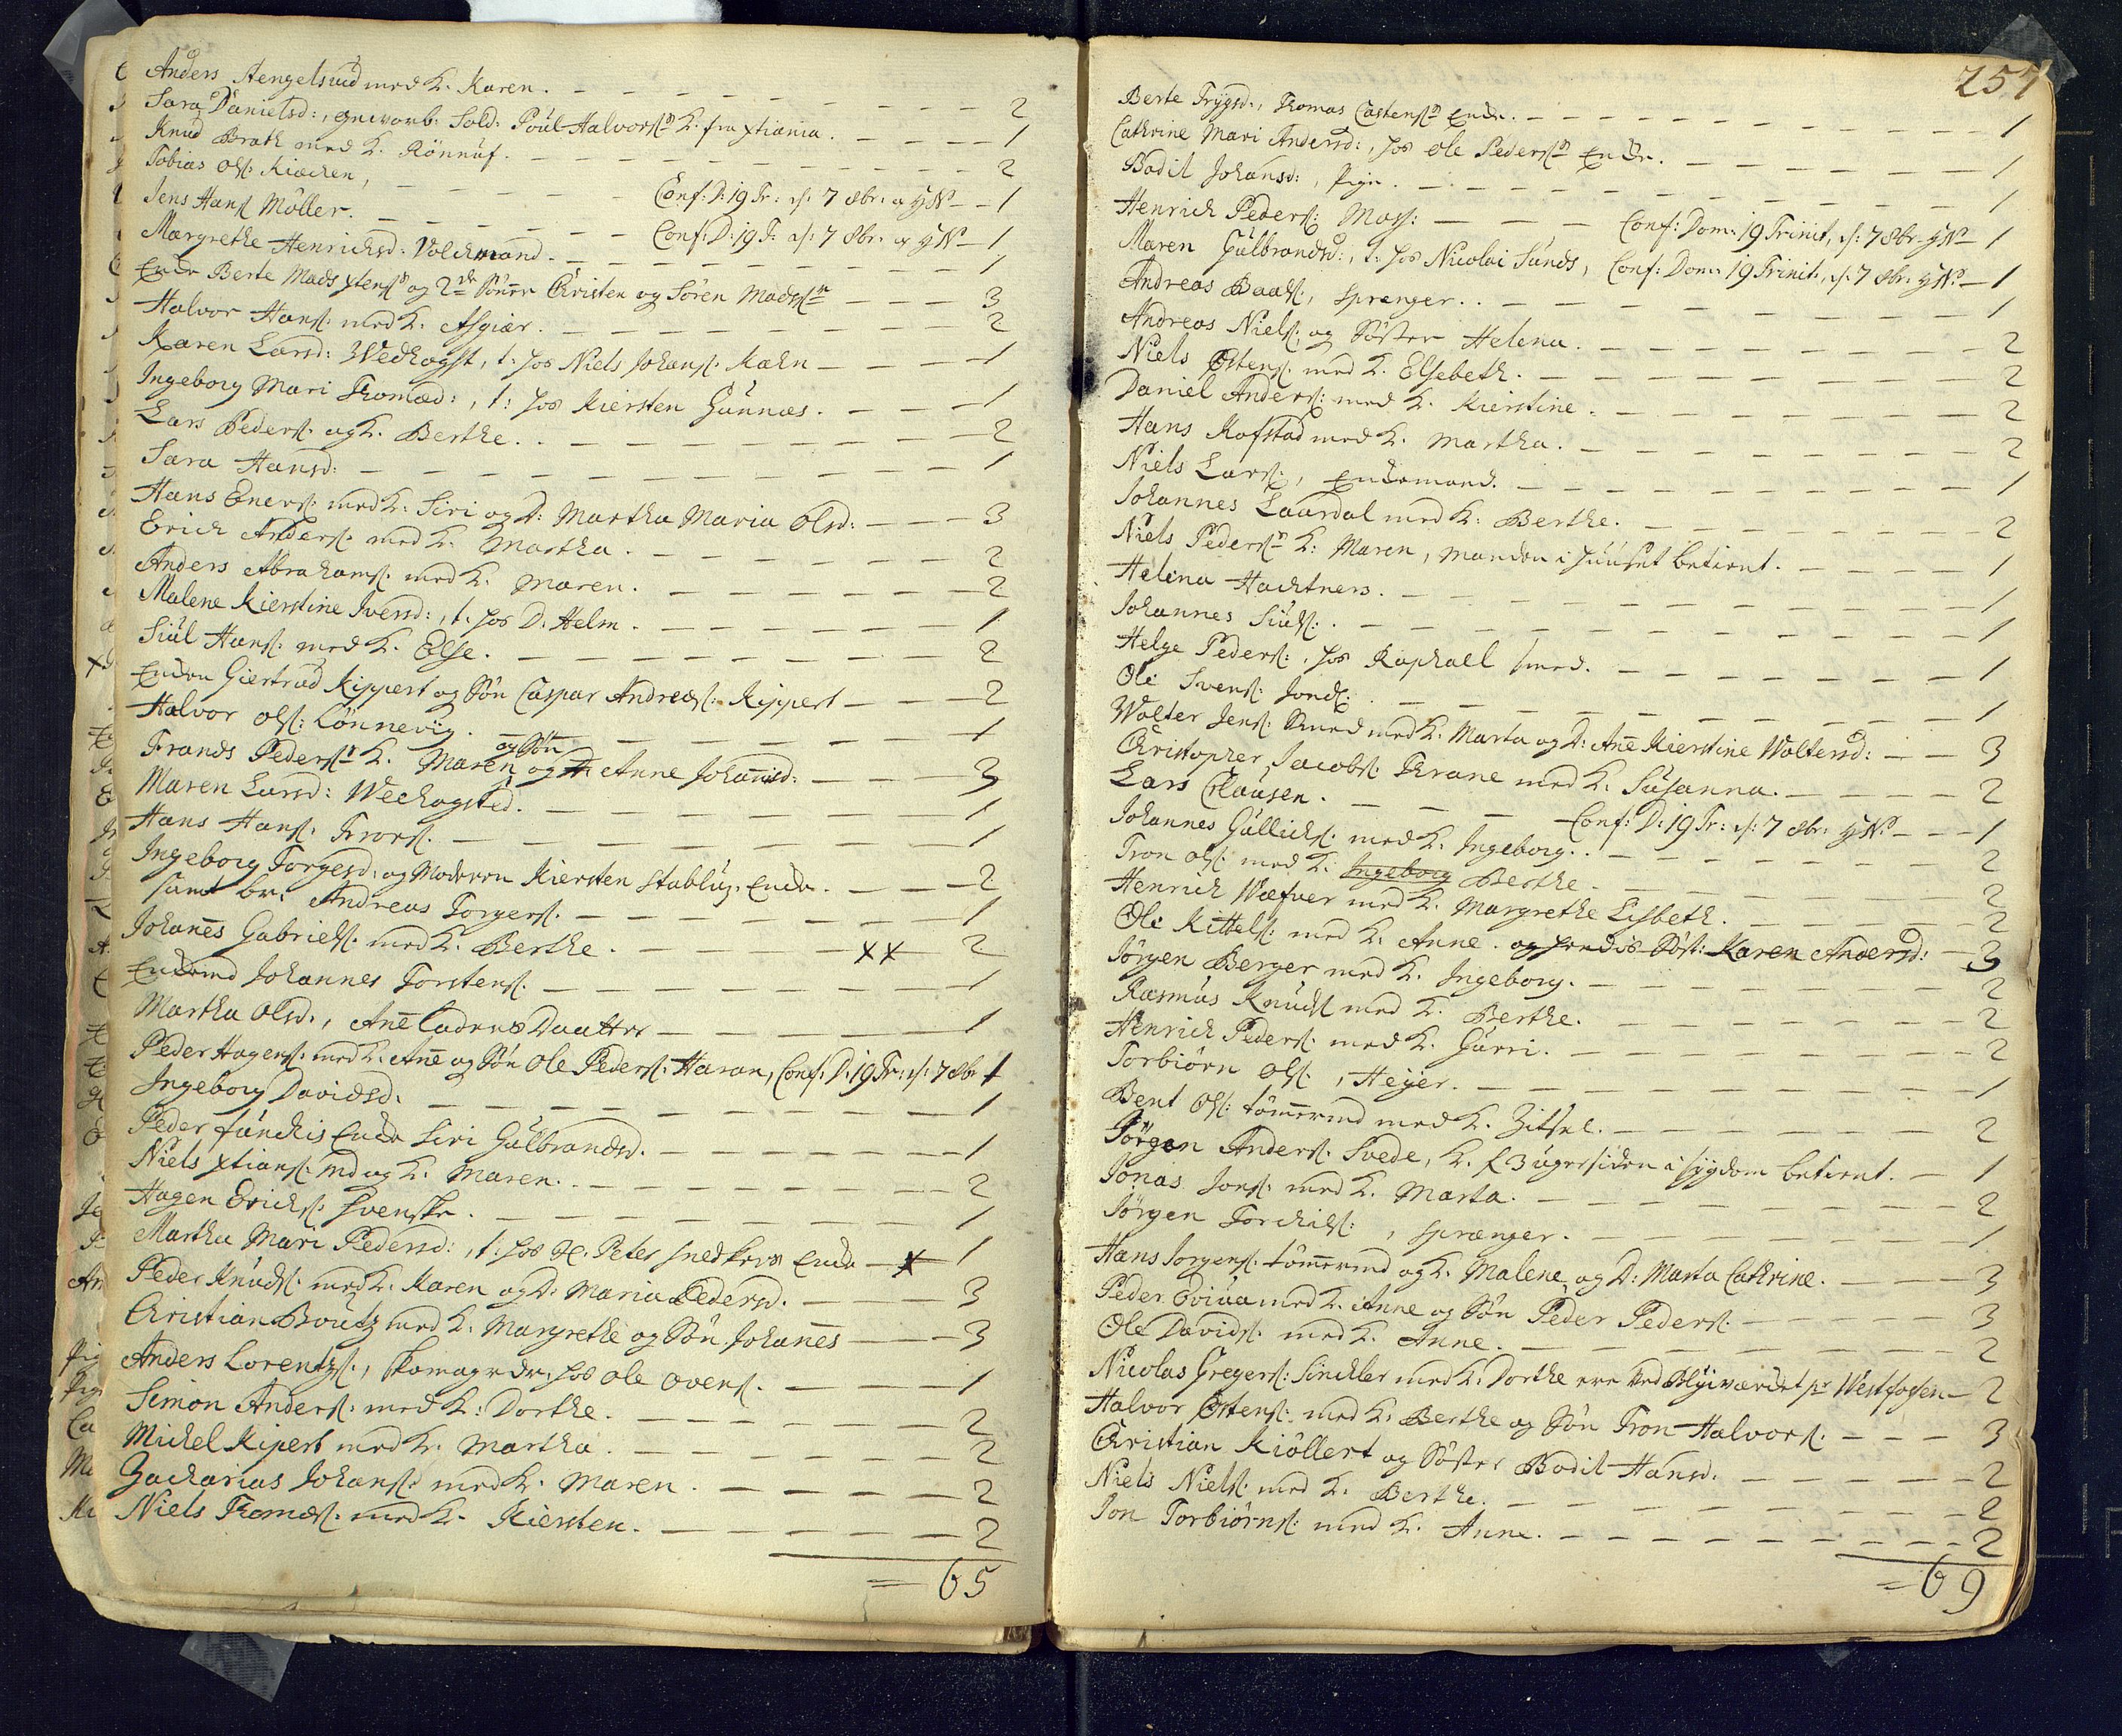 Anders Stengelsrud med K. Karen. 2
Sara Danielsd:, Sold: Poul Halvorsns K. fra xtiania. 1
Knud Brath med K. Rönnuf. 2
Tobias Ols: Kiæchen, Conf: D: 19 Tr: d: 7 8br. 1
Jens Hans Möller. Conf: D: 19 Tr: d: 7 8br. 1
Margrethe Henrichsd: Volchmand. 1
Enche Berte Mads xtens og 2de Sönner Christen og Sören Mads 3
Halvor Hans: med K. Asgiær. 2
Karen Larsd: Wedhogst, t: hos Niels Johans: Kahn 1
Ingeborg Mari Thomæd:, t: hos Kiersten Gunnæs. 1
Lars Peders: og K. Berthe. 2
Sara Hansd: 1
Hans Eners: med K. Siri og D: Martha Maria Olsd: 3
Erich Anders: med K. Martha. 2
Anders Abrahams: med K. Maren. 2
Malene Kierstine Iversd:, t. hos D. Helm. 1
Siul Hans: med K. Else. 2
Enchen Giertrud Kippert og Sön Caspar Andreæs: Kippert 2
Halvor Ols: Lönnevig. 1
Frands Peders K. Maren og Sön og Anne Johannisd: 3
Maren Larsd: Wedhogsted. 1
Hans Hans: Frors. 1
Ingeborg Torgersd: og Moderen Kiersten Enche. 2
samt br: Andreas Torgers: 1
Johanes Gabriels: med K. Berthe. xx 2
Enchemd Johannes Torstens: 1
Martha Olsd:, Daatter 1
Peder Hagens: med K. Ane og Sön Ole Peders: Haran, Conf: D: 19 Tr: d: 7 8br 1
Ingeborg Davidsd. 1
Peder Funchis Enche Siri Gulbrandsd. 1
Niels xtians: md og K. Maren. 2
Hagen Erichs: Svenske. 1
Martha Mari Pedersd:, t: hos Peter Snedkers Enche x 1
Peder Knuds: med K. Karen og D. Maria Pedersd. 3
Christian Boutz med K. Margrethe og Sön Johanes 3
Anders Lorentzs:, skomager, hos Ole Ovens. 1
Simon Anders: med K: Dorthe. 2
Michel Kipert med K. Martha. 2
Zacharias Johans: med K. Maren. 2
Niels Thomæs: med K. Kiersten. 2
= 65
257
Berte Trygsd:, Thomas Castens Enche. 1
Cathrine Mari Andersd:, hos Ole Peders Enche. 1
Bodil Johansd:, Pige. 1
Henrich Peders: Moss: Conf: Dom: 19 Trinit, d: 7 8br. 1
Maren Gulbrandsd:, t. hos Nicolai Sunds, Conf: Dom: 19 Trinit: d: 7 8br. 1
Andreas Baads:, sprænger. 1
Andreas Niels: og Söster Helena. 2
Niels Östens: med K. Elsebeth. 2
Daniel Anders: med K. Kierstine. 2
Hans Kofstad med K. Martha. 2
Niels Lars:, Enchemand. 1
Johannes Laardal med K: Berthe. 2
Niels Peders K: Maren, manden i huuset betient. 1
Helena Hachtners. 1
Johannes Siuls: 1
Helge Peders:, hos Raphaell Smed. 1
Ole Svens: 1
Wolter Jens: Smed med K. Marta og D: Ane Kierstine Woltersd: 3
Christopher Jacobs: Thrane med K. Susanna. 2
Lars Clausen. Conf: D: 19 Tr: d: 7 8br: 1
Johannes Gullichs: med K. Ingeborg. 2
Tron Ols: med K. Ingeborg Berthe. 2
Henrich Wæfver med K. Margrethe Lisbeth. 2
Ole Kittels: med K. Anne. og hendes Söst: Karen Andersd: 3
Jörgen Berger med K. Ingeborg. 2
Rasmus Knuds med K. Berthe. 2
Henrich Peders: med K. Gurri. 2
Torbiörn Ols:, Heyer. 1
Bent Ols: tömermd med K. Zitsel. 2
Jörgen Anders: Svede, K. f. 3 uger siden i sygdom betient. 1
Jonas Jons: med K. Marta. 2
Jörgen Torchils:, sprænger. 1
Hans Jorgens: tömermd og K. Malene og D: Marta Cathrine. 3
Peder med K. Anne og Sön Peder Peders: 3
Ole Davids: med K. Anne. 2
Nicolas Gregers: Sinckler med K. Dorthe ere ved Blyværdet pr Westfossen 2
Halvor Östens: med K. Berthe og Sön Tron Halvors: 3
Christian Kiöllert og Söster Bodil Hansd: 2
Niels Niels: med K. Berthe. 2
Jon Torbiörns: med K. Anne. 2
= 69